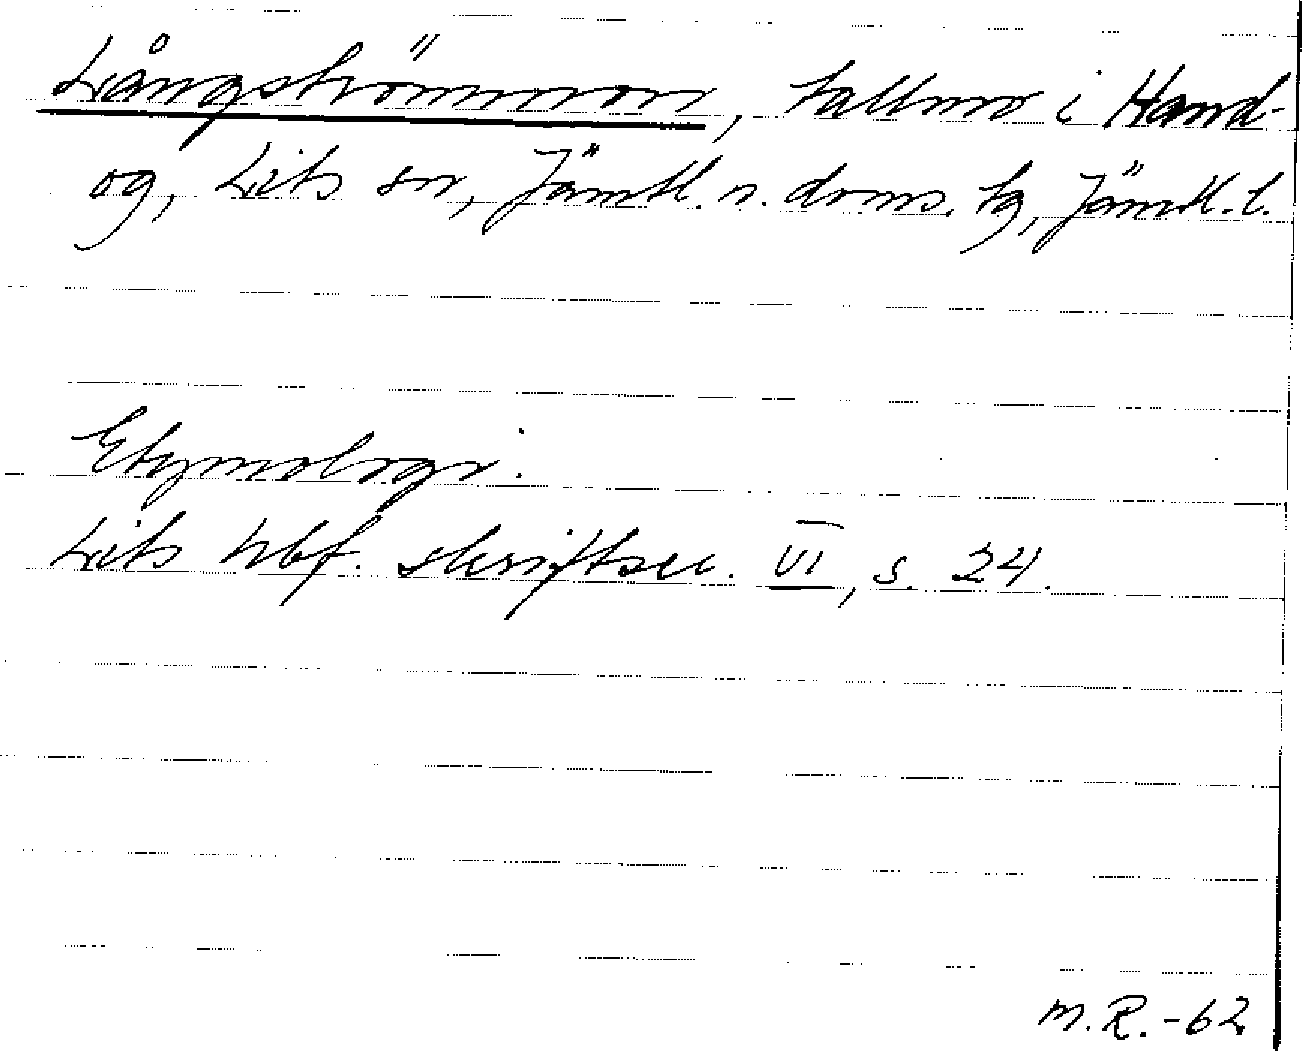 Långströmmon, tallmo i Hand-
og, Lits sn, Jämtl. n. doms. tg, Jämtl. l.
Etymologi.
Lits hbf. skriftser. VI, s. 24.
M.R.-62